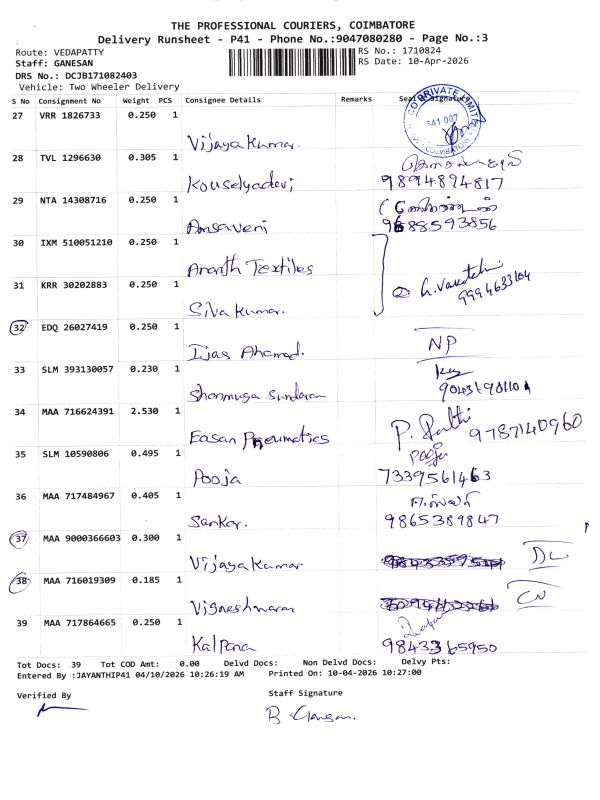 THE PROFESSIONAL COURIERS, COIMBATORE
Delivery Runsheet - P41 - Phone No.:9047080280 - Page No.:3
Route: VEDAPATTY
RS No.: 1710824
Staff: GANESAN
RS Date: 10-Apr-2026
DRS No.: DCJB171082403
Vehicle: Two Wheeler Delivery
S No Consignment No Weight PCS Consignee Details Remarks Seal & Signature
27 VRR 1826733 0.250 1
Vijaya Kumar.
28 TVL 1296630 0.305 1
Kouselyadevi 9894894817
29 NTA 14308716 0.250 1
Ansaveni 9688593856
30 IXM 510051210 0.250 1
Ananth Textiles
31 KRR 30202883 0.250 1
9994633104
Siva Kumar.
32 EDQ 26027419 0.250 1
Ijas Ahamed. NP
33 SLM 393130057 0.230 1
Shanmuga Sundaram
34 MAA 716624391 2.530 1
Easan Pneumatics 9787140960
35 SLM 10590806 0.495 1 Pooja
Pooja 7339561463
36 MAA 717484967 0.405 1
Sankar. 9865389847
37 MAA 9000366603 0.300 1
Vijaya Kumar DL
38 MAA 716019309 0.185 1
Vigneshwaran CN
39 MAA 717864665 0.250 1
Kalpana 9843365950
Tot Docs: 39 Tot COD Amt: 0.00 Delvd Docs: Non Delvd Docs: Delvy Pts:
Entered By :JAYANTHIP41 04/10/2026 10:26:19 AM Printed On: 10-04-2026 10:27:00
Verified By
Staff Signature